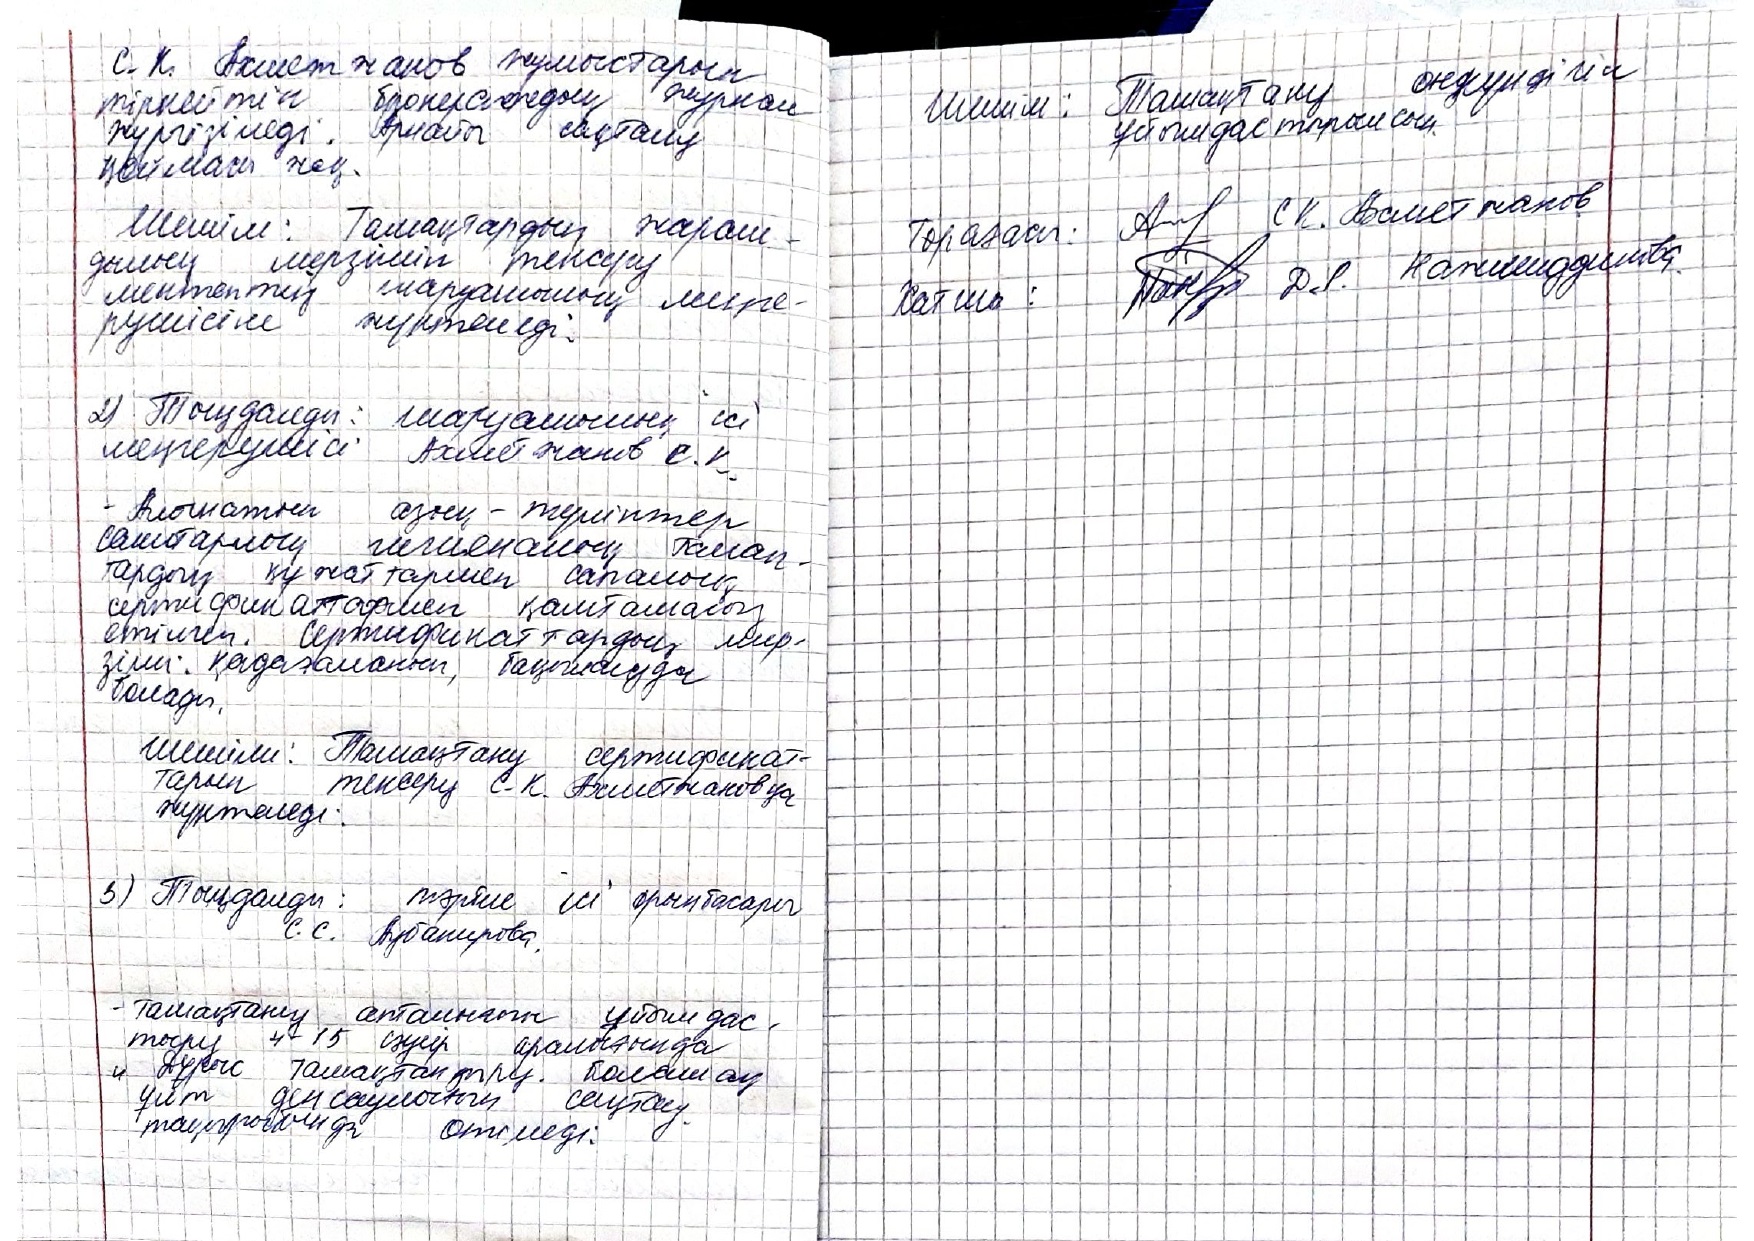 С.К. Ахметжанов жұмыстарын
тіркейтін бракераждық журнал
жүргізіледі. Арнайы сақтау
қоймасы жоқ.
Шешім: Тамақтардың жарам-
дылық мерзімін тексеру
мектептің шаруашылық меңге-
рушісіне жүктеледі.
2) Тыңдалды: шаруашылық ісі
меңгерушісі Ахметжанов С.К.
- Алынатын азық-түліктер
санитарлық гигиеналық талап-
тардың құжаттармен сапалық
сертификаттармен қамтамасыз
етілген. Сертификаттардың мер-
зімі қадағаланып, бақылауда
болады.
Шешім: Тамақтану сертификат-
тарын тексеру С.К. Ахметжановқа
жүктеледі.
3) Тыңдалды: тәрбие ісі орынбасары
С.С.
- Тамақтану апталығын ұйымдас
тыру 4-15 сәуір аралығында
" Дұрыс тамақтандыру. Болашақ
ұлт денсаулығын сақтау.
тақырыбында өтіледі.
Шешім: Тамақтану онкүндігін
ұйымдастырылсын.
Төрағасы: С.К. Ахметжанов
Хатшы: Д.Я. Нажмиддинова